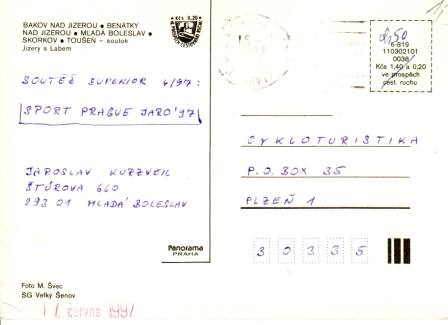 BAKOV NAD JIZEROU • BENÁTKY
NAD JIZEROU • MLADÁ BOLESLAV •
SKORKOV • TOUŠEŇ – soutok
Jizery s Labem
Kčs 0,20
6-819
110302101
0038
Kčs 1,40 a 0,20
ve prospěch
cest. ruchu
SOUTĚŽ SUPERIOR 4/97:
SPORT PRAGUE JARO '97
JAROSLAV KURZVEIL
ŠTÚROVA 660
293 01 MLADÁ BOLESLAV
CYKLOTURISTIKA
P.O. BOX 35
PLZEŇ 1
30335
Panorama
PRAHA
Foto M. Švec
SG Velký Šenov
17. června 1997